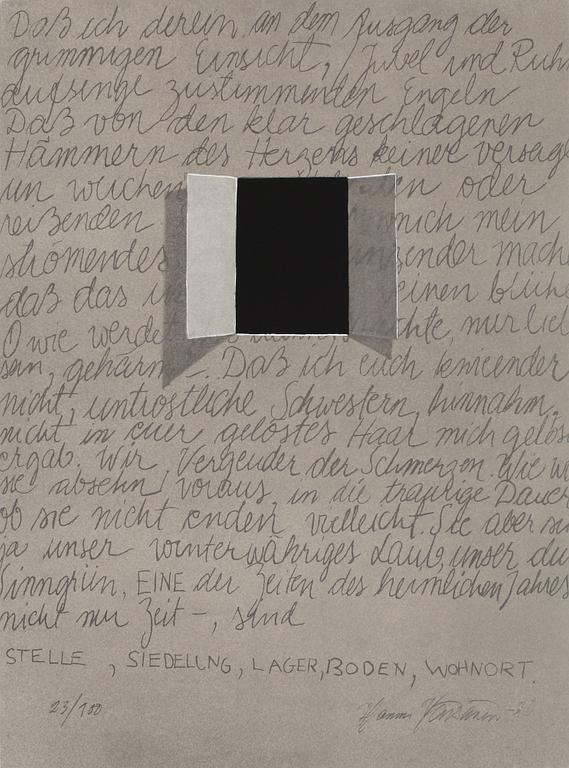 Daß ich dereinst an dem Ausgang der
grimmigen Einsicht, Jubel und Ruhm
aufsinge zustimmenden Engeln
Daß von den klar geschlagenen
Hämmern des Herzens keiner versag
un weichen oder
reißenden mich mein
strömendes änzender mache
daß das einen blühe
O wie werdet chte, mir lieb
sein, gehärm Daß ich euch knieender
nicht, untröstliche Schwestern, hinnahm.
nicht in euer gelöstes Haar mich gelöst
ergab. Wir, Vergeuder der Schmerzen. Wie wi
sie absehn voraus, in die traurige Dauer
ob sie nicht enden vielleicht. Sie aber si
ja unser winterwähriges Laub, unser du
Sinngrün, EINE der Zeiten des heimlichen Jahres
nicht nur Zeit –, sind
STELLE , SIEDELUNG, LAGER, BODEN, WOHNORT.
23/100